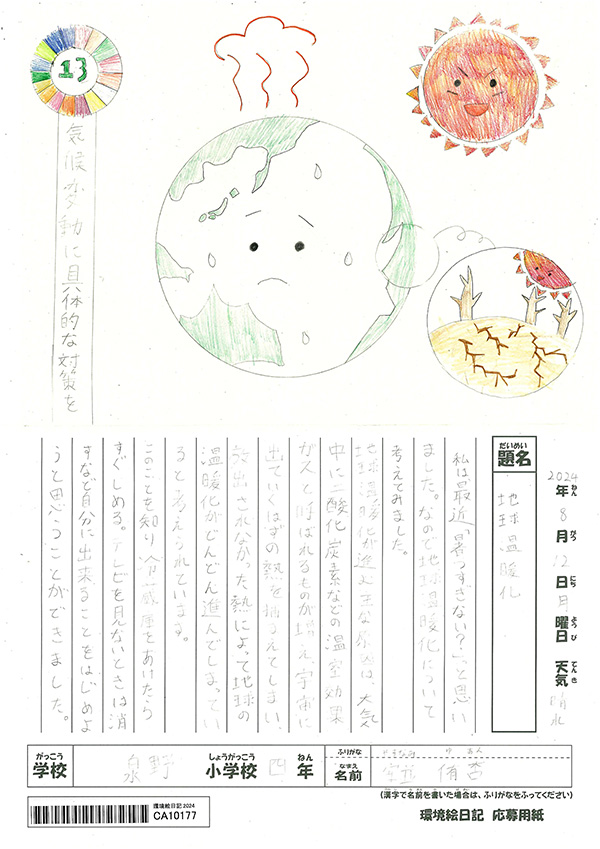 13
気候変動に具体的な対策を
だいめい
題名
地球温暖化
2024年8月12日月曜日 天気 晴れ
ねん がつ にち ようび てんき
私は最近「暑つすぎない？」と思い
ました。なので地球温暖化について
考えてみました。
地球温暖化が進む主な原因は、大気
中に二酸化炭素などの温室効果
ガスと呼ばれるものが増え、宇宙に
出ていくはずの熱を捕らえてしまい、
放出されなかった熱によって地球の
温暖化がどんどん進んでしまってい
ると考えられています。
このことを知り、冷蔵庫をあけたら
すぐしめる。テレビを見ないときは消
すなど自分に出来ることをはじめよ
うと思うことができました。
がっこう しょうがっこう ねん ふりがな
学校 泉野 小学校 四年 なまえ 名前 侑杏
(漢字で名前を書いた場合は、ふりがなをふってください)
環境絵日記 2024
CA10177
環境絵日記 応募用紙